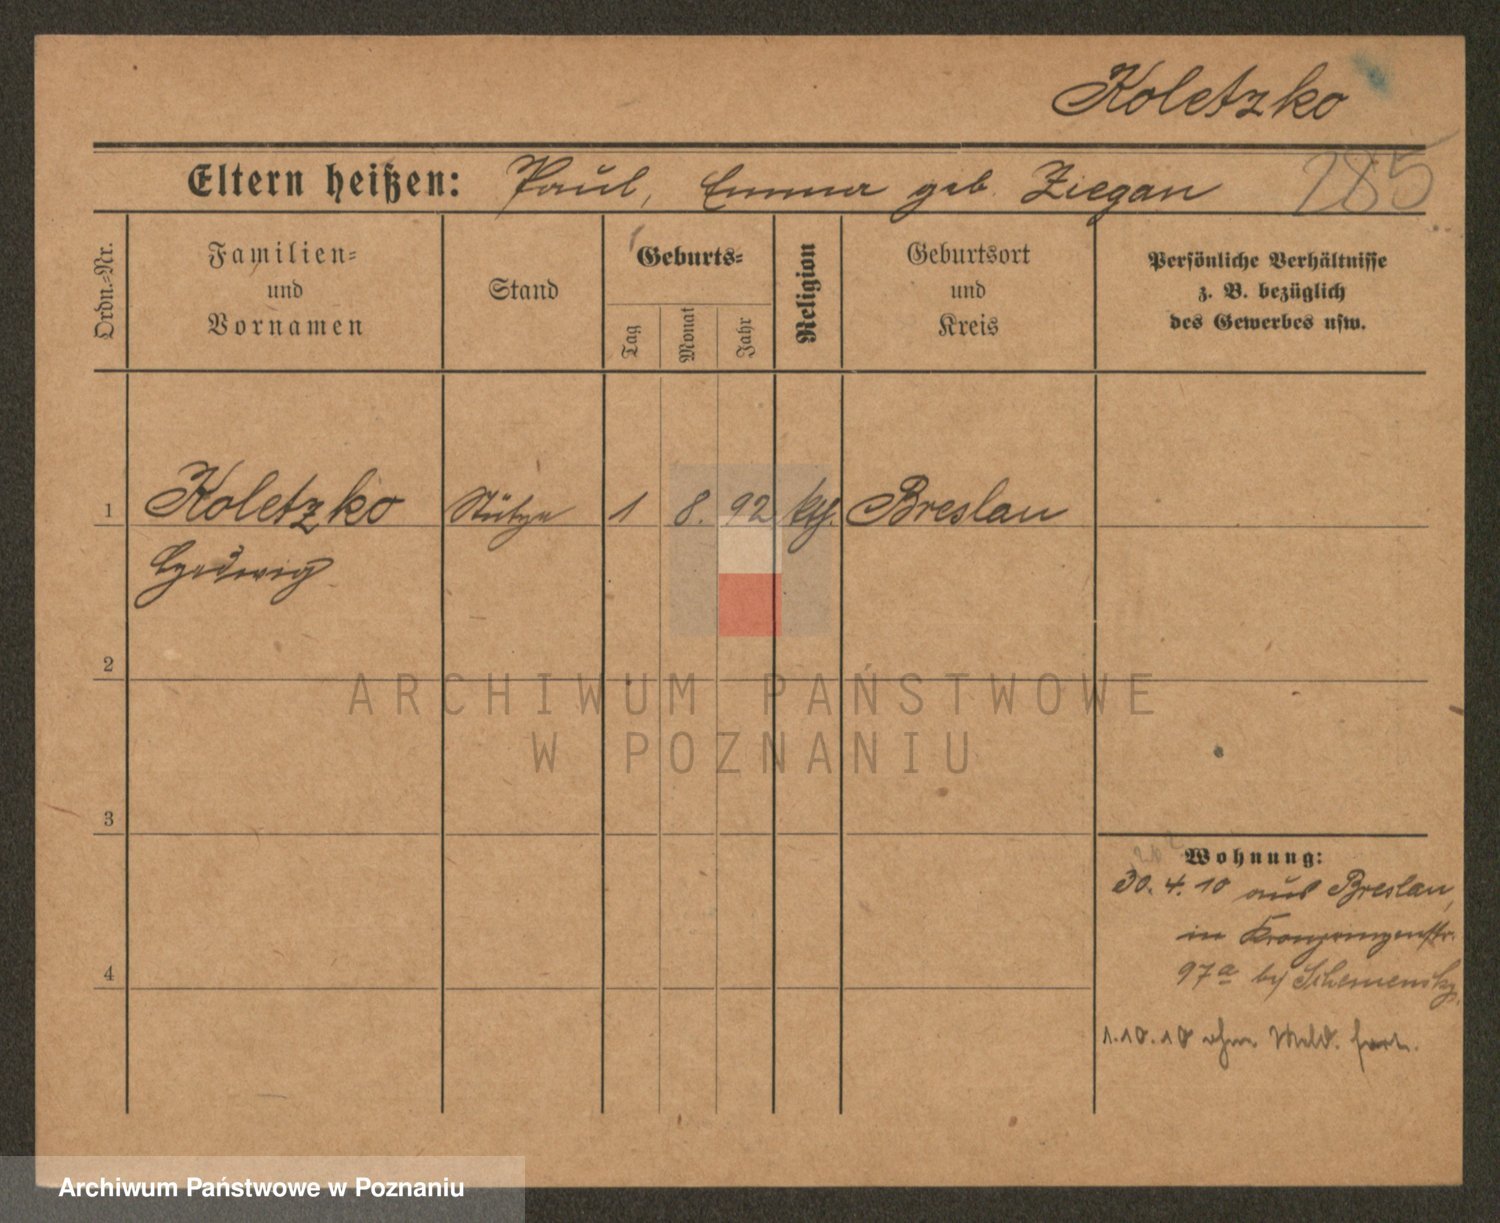 Koletzko
Eltern heißen: Paul, Emma geb. Ziegan
285
Ordn.=Nr.
Familien=
und
Vornamen
Stand
Geburts=
Tag
Monat
Jahr
Religion
Geburtsort
und
Kreis
Persönliche Verhältnisse
z. B. bezüglich
des Gewerbes usw.
1 Koletzko Stütze 1 8. 92 kth. Breslau
Hedwig
2
3
4
Wohnung:
30. 4. 10 aus Breslau,
in Kronprinzenstr.
97a bei
1.10.10 ohne Meld. fort.
ARCHIWUM PAŃSTWOWE
W POZNANIU
Archiwum Państwowe w Poznaniu